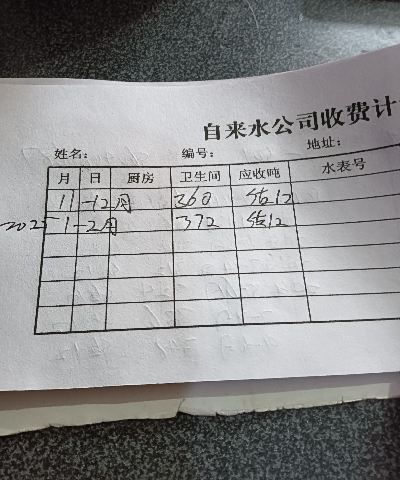 自来水公司收费计
姓名： 编号： 地址：
月 日 厨房 卫生间 应收吨 水表号
11 -12月 360 结12
2025 1 -2月 372 结12